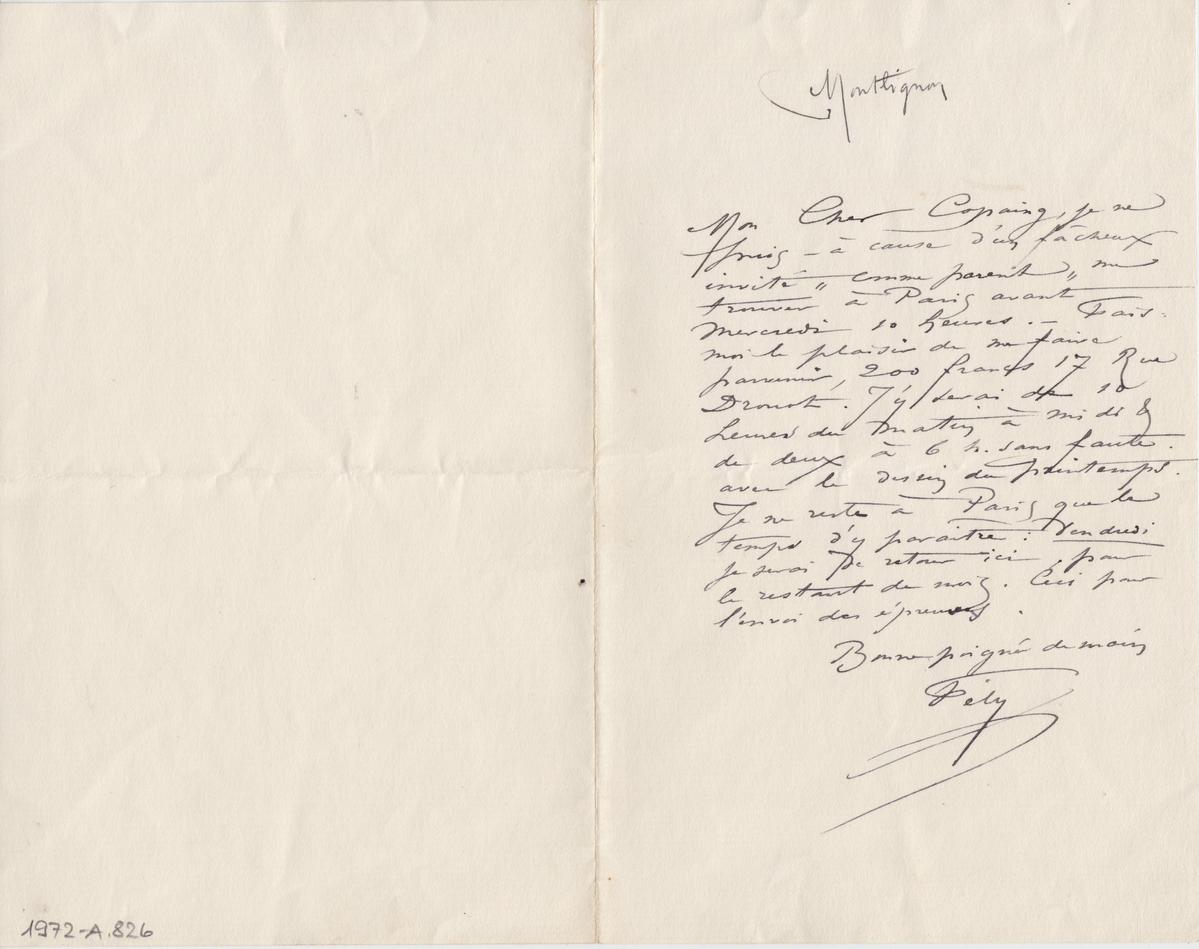 Montlignon
Mon Cher Copaing, je ne
puis – à cause d'un fâcheux
invité „ comme parent „ me
trouver à Paris avant
Mercredi 10 heures. – Fais-
moi le plaisir de me faire
parvenir, 200 francs 17 Rue
Drouot. J'y serai de 10
heures du matin à midi &
de deux à 6 h. sans faute.
avec le dessin du printemps.
Je ne reste à Paris que le
temps d'y paraître : Vendredi
je serai de retour ici, pour
le restant du mois. Ceci pour
l'envoi des épreuves.
Bonne poignée de main
Fély
1972-A.826